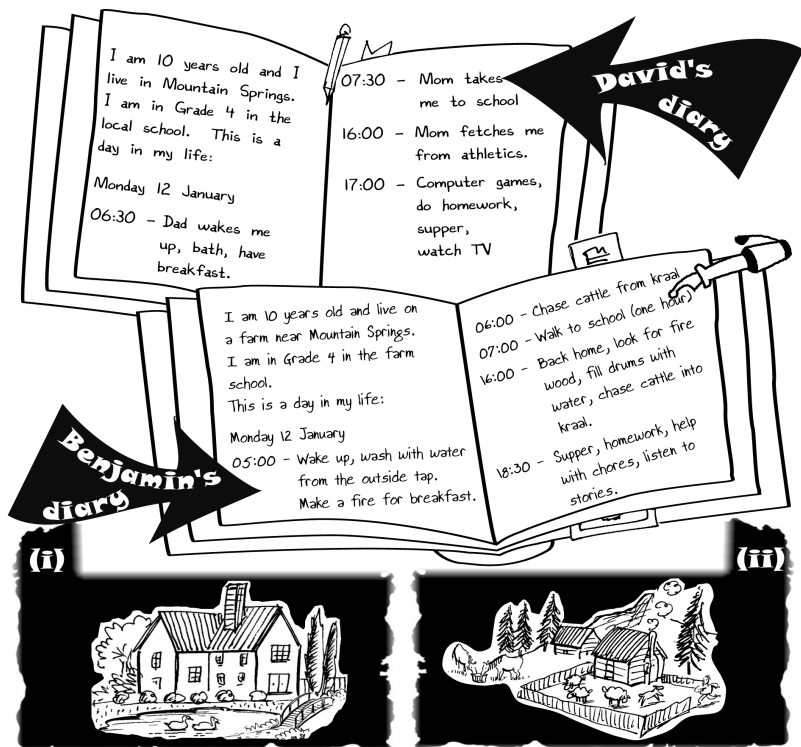 I am 10 years old and I
live in Mountain Springs.
I am in Grade 4 in the
local school. This is a
day in my life:
Monday 12 January
06:30 – Dad wakes me
up, bath, have
breakfast.
07:30 – Mom takes
me to school
16:00 – Mom fetches me
from athletics.
17:00 – Computer games,
do homework,
supper,
watch TV
David's
diary
I am 10 years old and live on
a farm near Mountain Springs.
I am in Grade 4 in the farm
school.
This is a day in my life:
Monday 12 January
05:00 – Wake up, wash with water
from the outside tap.
Make a fire for breakfast.
06:00 – Chase cattle from kraal
07:00 – Walk to school (one hour)
16:00 – Back home, look for fire
wood, fill drums with
water, chase cattle into
kraal.
18:30 – Supper, homework, help
with chores, listen to
stories.
Benjamin's
diary
(i)
(ii)